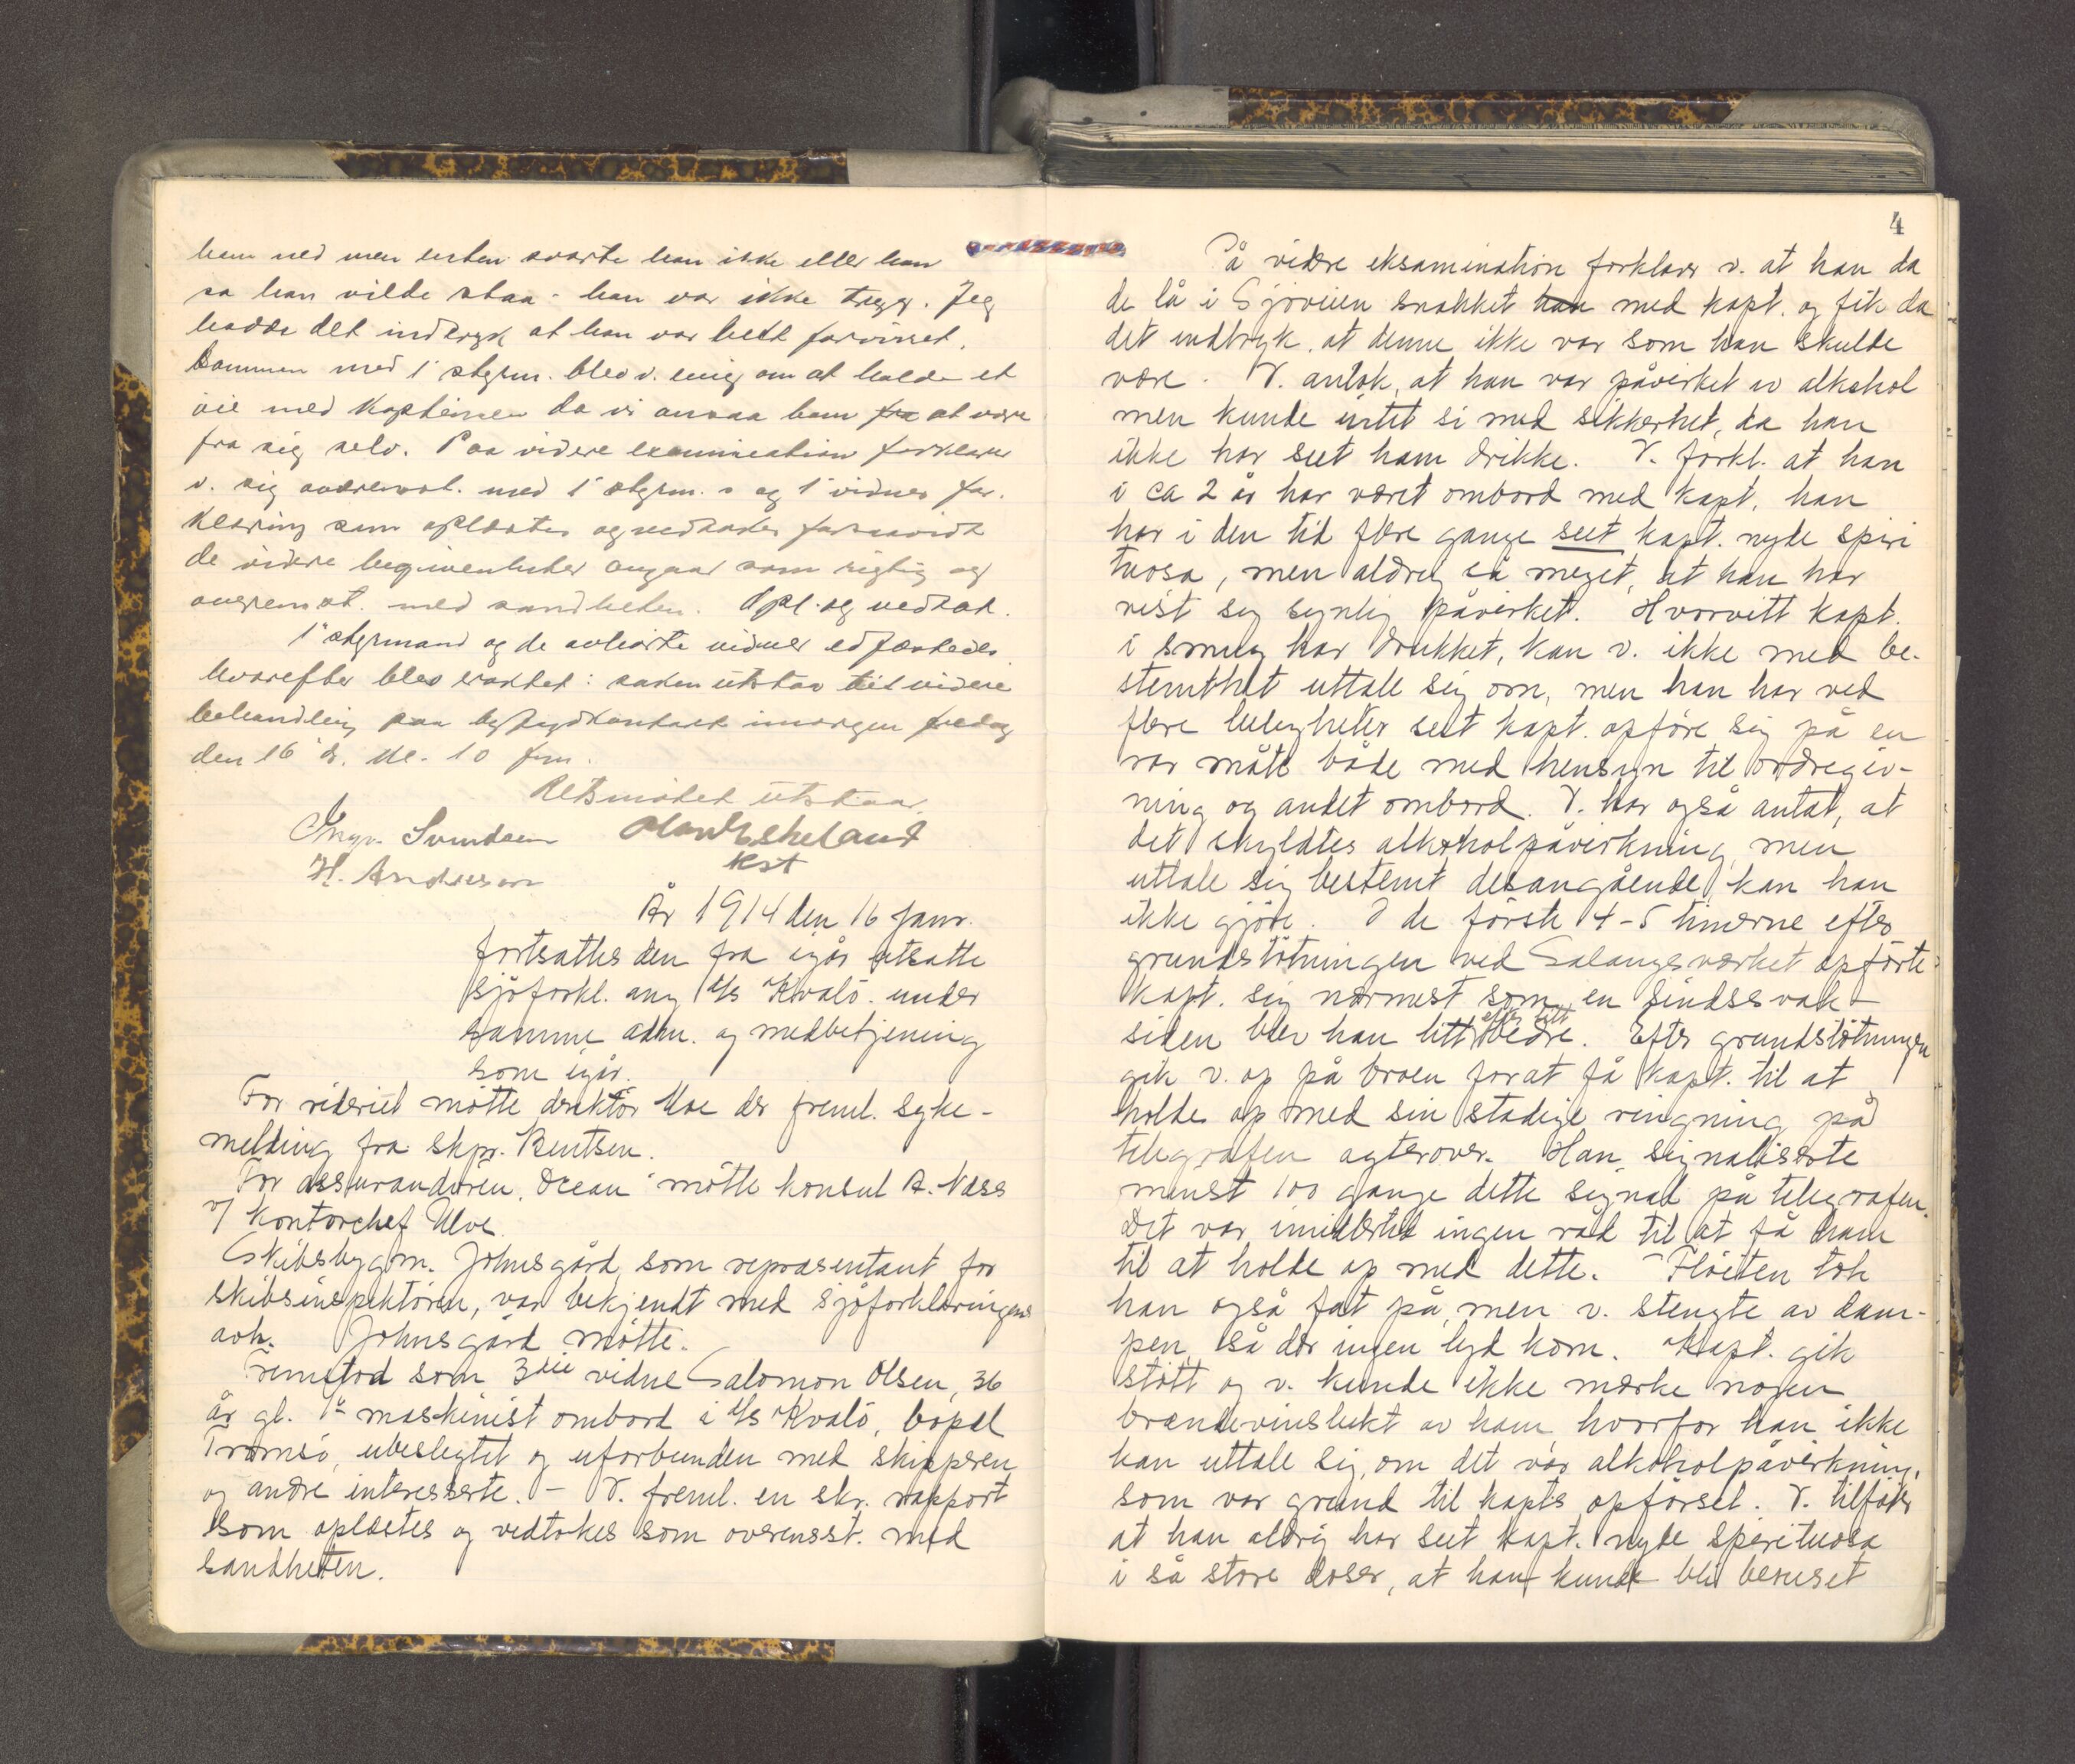 ham ned men enten svarte han ikke eller han
sa han vilde staa - han var ikke trygg. Jeg
hadde det indtryk at han var helt forvirret.
Sammen med 1 styrm. blev v. enig om at holde et
øie med Kapteinen da vi ansaa ham fra at være
fra sig selv. Paa videre examination forklarer
v. sig overensst. med 1 styrm. s og 1 vidnes for-
klaring som oplæstes og vedtokes forsaavidt
de videre begivenheter angaar som rigtig og
overensst. med sandheten. Opl. og vedtat.
1 styrmand og de avhørte vidner edfæstedes
hvorefter blev eraktet: saken utstaar til videre
behandling paa byfogdkontoret imorgen fredag
den 16 ds. kl. 10 fm.
Retsmötet utstaar
Ingv. Svendsen Olav Eskeland
H. Andreassen kst
År 1914 den 16 janr.
fortsattes den fra igår utsatte
sjöforkl. ang D/s Kvalö. under
samme adm. og medbetjening
som igår.
For rederiet mötte direktör Moe der freml. syke-
melding fra skpr. Bentsen.
For assurandören "Ocean" mötte konsul A. Næss
v/ kontorchef Ulve
Skibsbygm. Johnsgård, som repræsentant for
skibsinspektören, var bekjendt med sjöforklaringens
avh. Johnsgård mötte.
Fremstod som 3die vidne Salomon Olsen, 36
år gl. 1ste maskinist ombord i D/s Kvalö, bopæl
Tromsö, ubeslegtet og uforbunden med skipperen
og andre interesserte. - V. freml. en skr. rapport
som oplæstes og vedtokes som overensst. med
sandheten.
4
På videre eksamination forklarer v. at han da
de lå i Sjöveien snakket han med kapt. og fik da
det indtryk, at denne ikke var som han skulde
være. V. antok, at han var påvirket av alkohol
men kunde intet si med sikkerhet, da han
ikke har seet ham drikke. V. forkl. at han
i ca 2 år har været ombord med kapt, han
har i den tid flere gange seet kapt. nyde spiri
tuosa, men aldrig så meget, at han har
vist sig synlig påvirket. Hvorvitt kapt.
i smug har drukket, kan v. ikke med be-
stemthet uttale sig om, men han har ved
flere leiligheter seet kapt. opföre sig på en
rar måte både med hensyn til ordregiv-
ning og andet ombord. V. har også antat, at
det skyldtes alkoholpåvirkning, men
uttale sig bestemt desangående kan han
ikke gjöre. I de förste 4-5 timerne efter
grundstötningen ved Salangsværket opförte
kapt. sig nærmest som en sindssvak -
siden blev han litt efter litt bedre. Efter grundstötningen
gik v. op på broen forat få kapt. til at
holde op med sin stadige ringning på
telegrafen agterover. Han signaliserte
minst 100 gange dette signal på telegrafen.
Det var imidlertid ingen råd til at få ham
til at holde op med dette. Flöiten tok
han også fat på, men v. stengte av dam-
pen, så der ingen lyd kom. Kapt. gik
stött og v. kunde ikke mærke nogen
brændevinslukt av ham, hvorfor han ikke
kan uttale sig, om det var alkoholpåvirkning,
som var grund til kapts opförsel. V. tilföier
at han aldrig har seet kapt. nyde spirituosa
i så store doser, at han kunde bli beruset